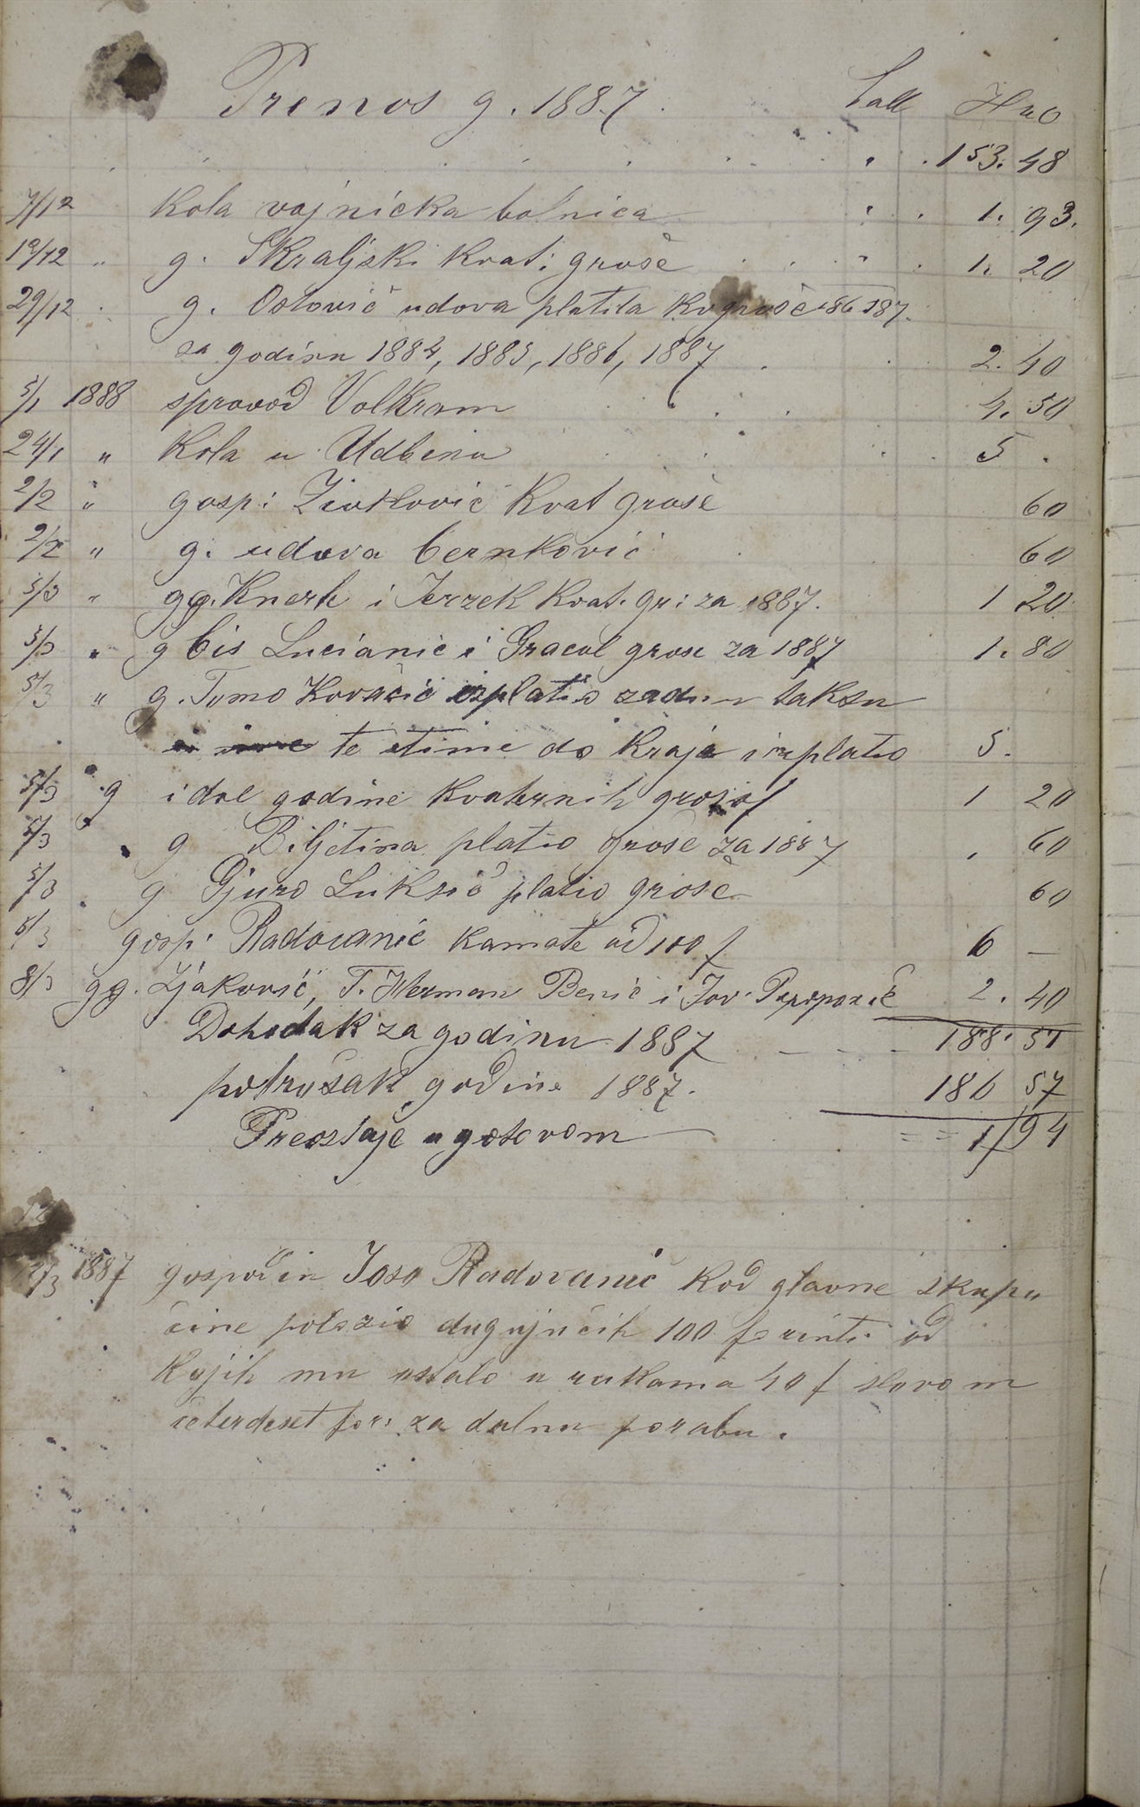 Prenos g. 1887.
153. 48
7/12 Kola vojnicka bolnica 1. 93.
19/12 " g. Skraljski Kvat: groše 1. 20
29/12 g. Ostović udova platila Kv groše 86 187.
za godinu 1884, 1885, 1886, 1887 2. 40
5/1 1888 sprovod Volkram 4. 50
24/1 " Kola u Udbinu 5 .
2/2 " gosp: Živković Kvat groše 60
2/2 " g. udova Cernković 60
5/3 " gg. Knerh i Jerzek Kvat. gr: za 1887. 1 20
5/3 " g Cis Lucianic i Gracul grose za 1887 1. 80
5/3 " g. Tomo Kovačić izplatio zadnu taksu
te stime do Kraja izplatio 5.
5/3 g i dve godine Kvaternih groša 1 20
5/3 " g Biljetina platio grose za 1887 . 60
5/3 . g Gjuro Luksić platio grose 60
5/3 gosp: Radovanić Kamate od 100 f 6 —
8/3 gg. Ljaković, F. Herman Benić i Jov. 2. 40
Dohodak za godinu 1887 188. 51
potrošak godine 1887. 186 57
Preostaje u gotovom 1/94
/3 1887 gospodin Joso Radovanić Kod glavne skupu
cine polozio dugujučih 100 forinti od
Kojih mu ostalo u rukama 40 f slovom
četerdeset for: za dalnu porabu.